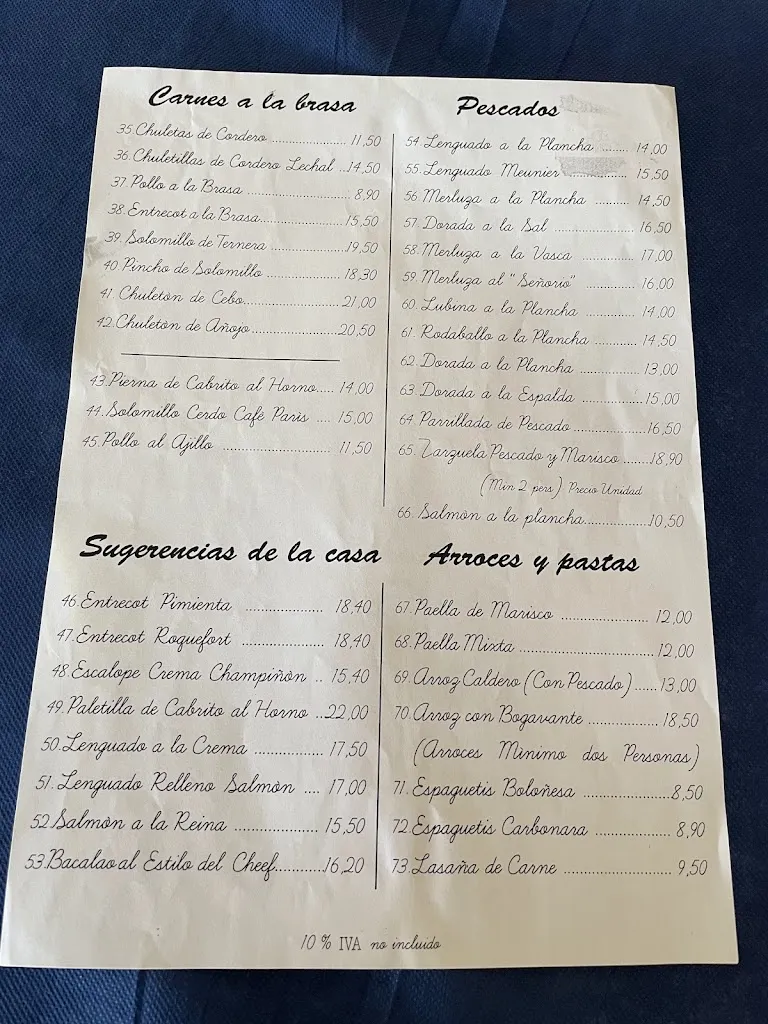 Carnes a la brasa
35.Chuletas de Cordero ..................... 11,50
36.Chuletillas de Cordero Lechal ...14,50
37.Pollo a la Brasa ............................. 8,90
38.Entrecot a la Brasa....................... 15,50
39.Solomillo de Ternera ..................... 19,50
40.Pincho de Solomillo ..................... 18,30
41.Chuletòn de Cebo........................... 21,00
42.Chuletón de Añojo......................... 20,50
43.Pierna de Cabrito al Horno..... 14,00
44.Solomillo Cerdo Café Parìs .... 15,00
45.Pollo al Ajillo ............................. 11,50
Pescados
54 Lenguado a la Plancha ........ 14,00
55.Lenguado Meunier ..................... 15,50
56 Merluza a la Plancha .......... 14,50
57 Dorada a la Sal ..................... 16,50
58.Merluza a la Vasca ............... 17,00
59.Merluza al "Señorio" ............. 16,00
60.Lubina a la Plancha ............. 14,00
61.Rodaballo a la Plancha .......... 14,50
62.Dorada a la Plancha ............. 13,00
63.Dorada a la Espalda .............15,00
64 Parrillada de Pescado ............... 16,50
65.Zarzuela Pescado y Marisco .......18,90
(Min 2 pers) Precio Unidad
66.Salmòn a la plancha.................10,50
Sugerencias de la casa
46.Entrecot Pimienta ................... 18,40
47.Entrecot Roquefort .................... 18,40
48.Escalope Crema Champiñòn .. 15,40
49.Paletilla de Cabrito al Horno ..22,00
50.Lenguado a la Crema ................. 17,50
51.Lenguado Relleno Salmòn .... 17,00
52.Salmòn a la Reina ..................... 15,50
53.Bacalao al Estilo del Cheef...........16,20
Arroces y pastas
67.Paella de Marisco ..................... 12,00
68.Paella Mixta ............................... 12,00
69.Arroz Caldero (Con Pescado)......13,00
70.Arroz con Bogavante ................. 18,50
(Arroces Mìnimo dos Personas)
71.Espaguetis Boloñesa .......................8,50
72.Espaguetis Carbonara .................. 8,90
73.Lasaña de Carne .......................... 9,50
10 % IVA no incluido